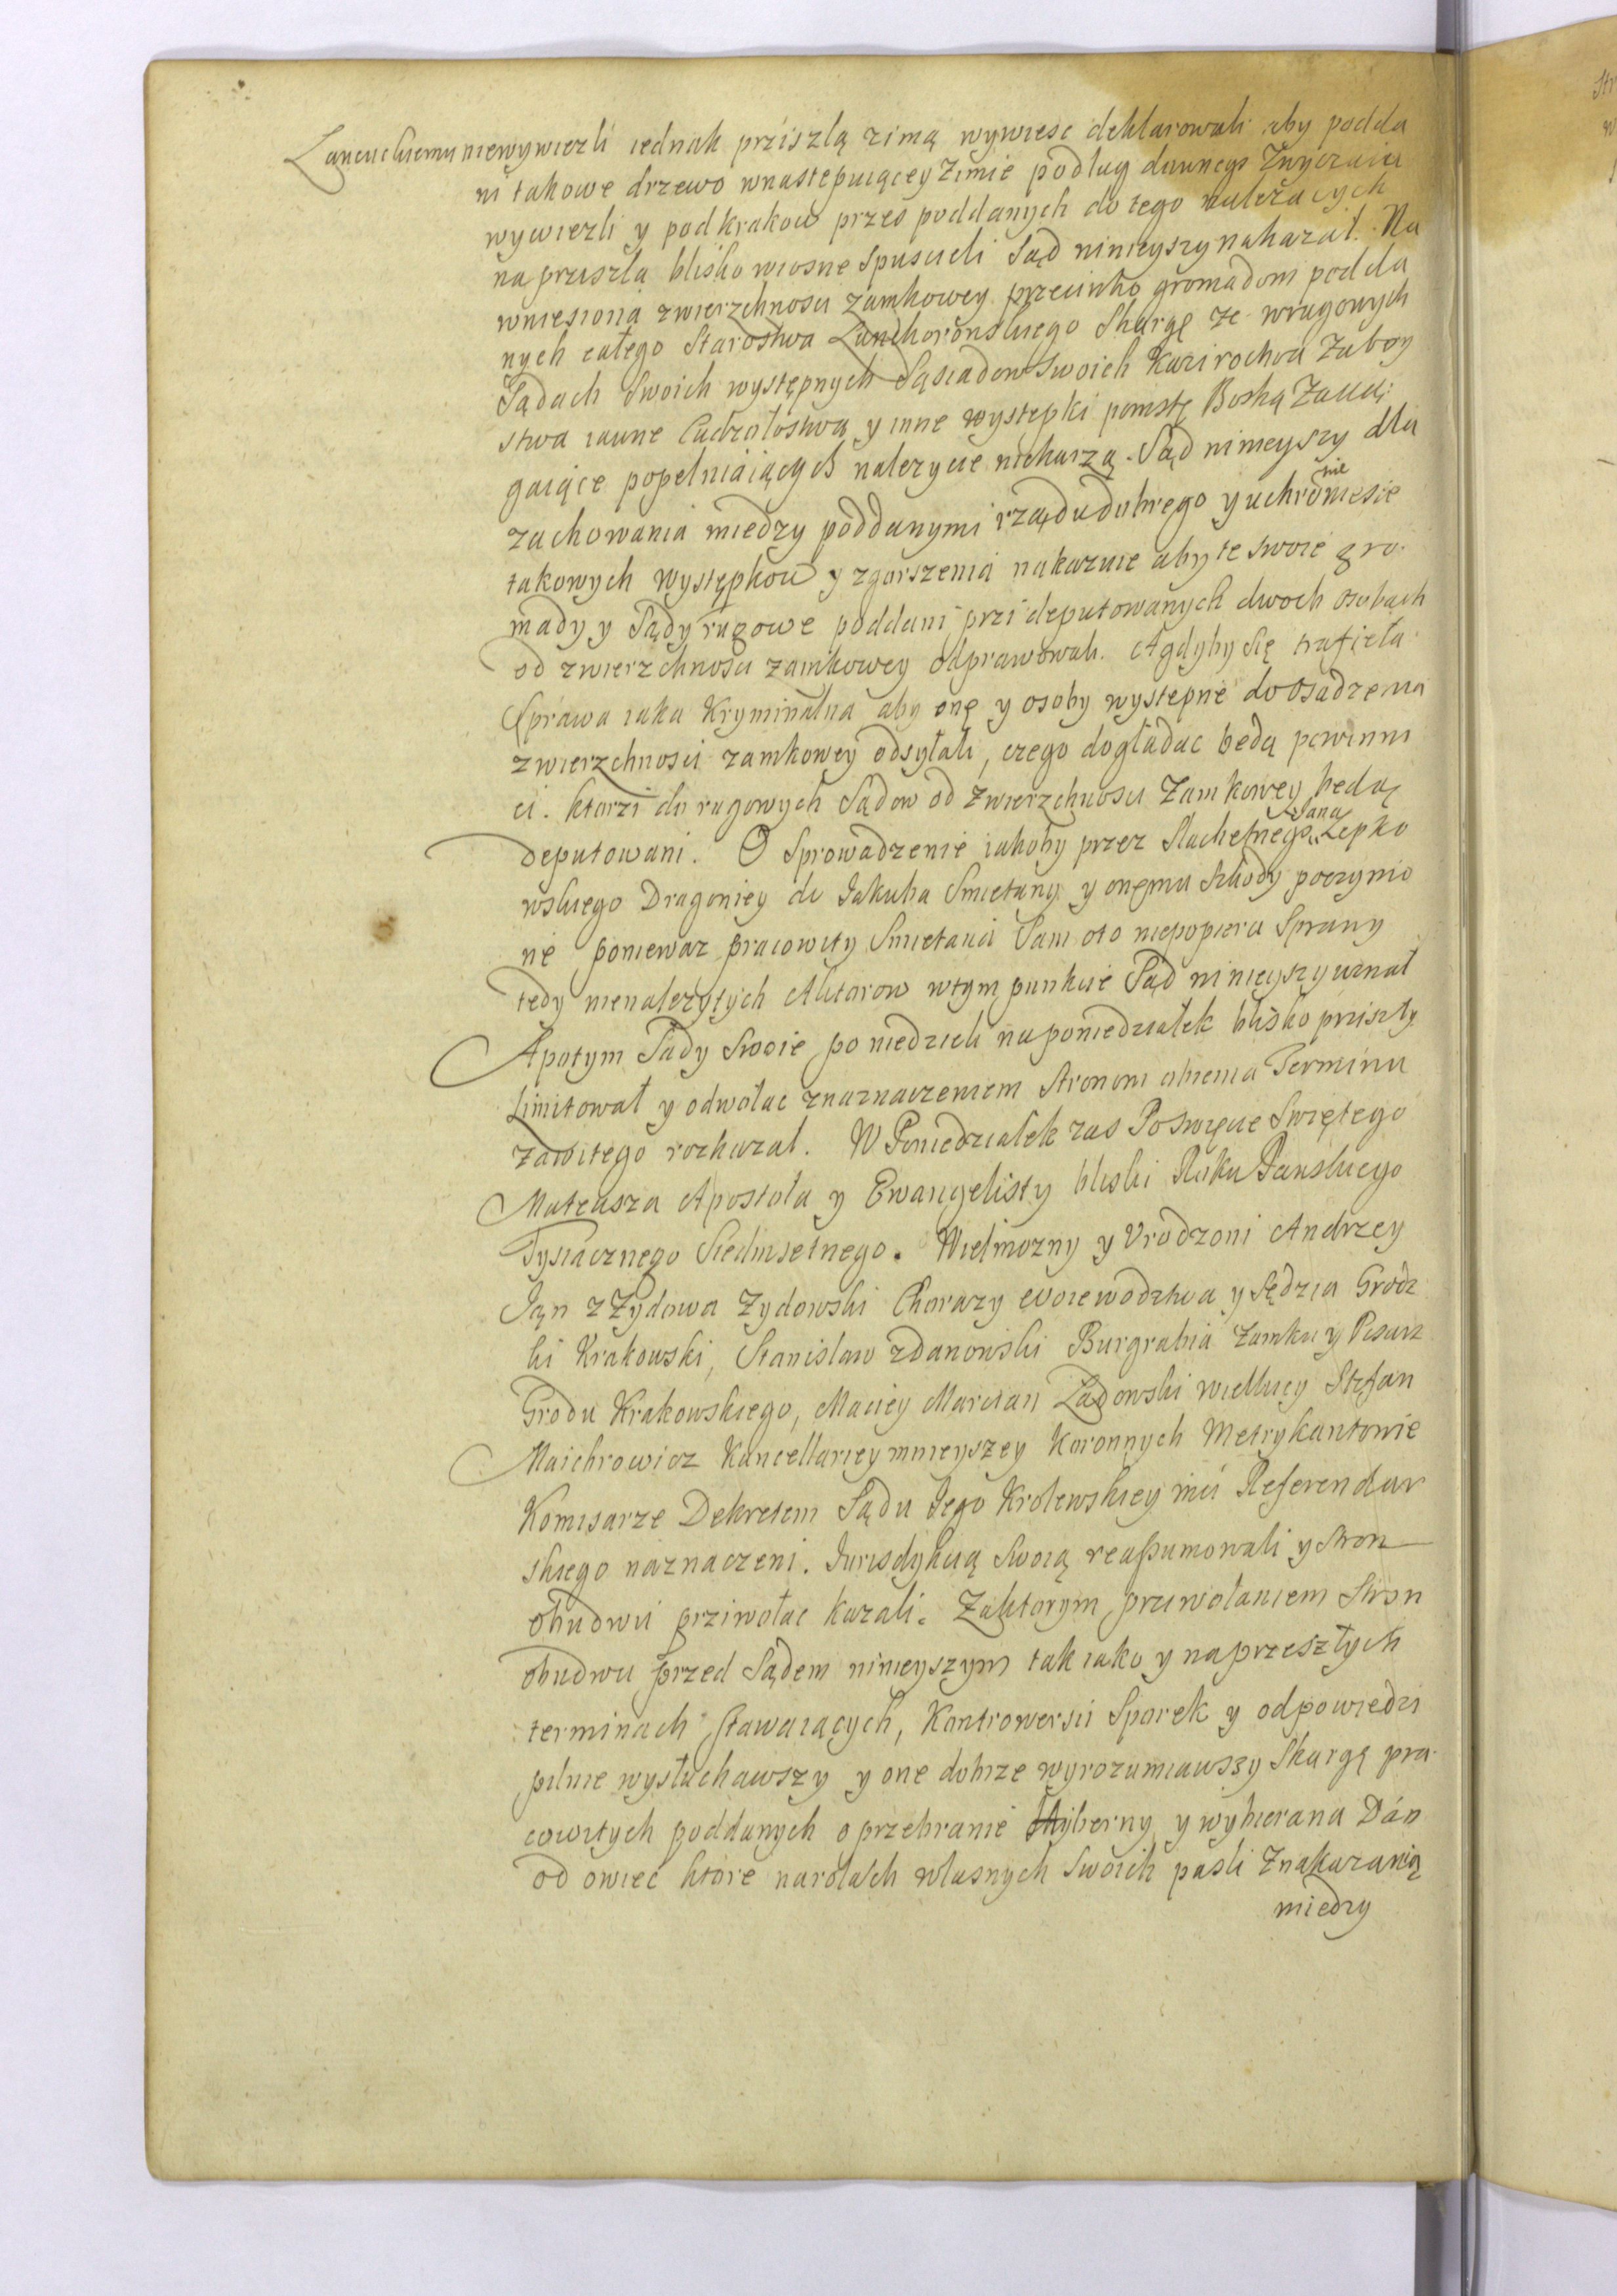 Lancuckiemu niewywiezli iednak prziszlą zimą wywiesc deklarowali aby podda
ni takowe drzewo wnastepuiącey Zimie podług dawnego Zwyczaiu
wywiezli y pod krakow przes poddanych do tego należacych
na przszla blisko wiosne spuscieli Sąd ninieyszy nakazał. Na
wniesioną zwierzchnosci zamkowey przeciwko gromadom podda
nych całego Starostwa Lanckoronskiego Skargę ze wrugowych
Sądach Swoich występnych Sąsiadow Swoich Kaziroctwa Zaboy
stwa iawne Cudzołostwa y inne występki pomstę Boską Zacią
gaiące popełniaiących nalezycie niekarzą. Sąd ninieyszy dla
zachowania miedzy poddanymi rządu dobrego y uchronienie sie
takowych występkow y zgorszenia nakazuie aby te swoie gro
mady y Sądy rugowe poddani przi deputowanych dwoch osobach
od zwierzchnosci zamkowey odprawowali. Agdyby się trafieła
Sprawa iaka Kryminalna aby onę y osoby występne do osadzenia
zwierzchnosci zamkowey odsyłali, czego dogladac bedą powinni
ci. ktorzi do rugowych Sądow od Zwierzchnosci Zamkowey bedą
deputowani. O Sprowadzenie iakoby przez Slachetnego Jana Lepko
wskiego Dragoniey do Jakuba Smietany y onemu szkody poczynio
ne poniewaz pracowity Smietana Sam oto niepopiera Sprawy
tedy nienalezytych Aktorow wtym punkcie Sąd ninieyszy uznał
Apotym Sądy Swoie po niedzieli na poniedziałek blisko prziszły
Limitował y odwołac znaznaczeniem Stronom obiema Terminu
zawitego rozkazał. W Poniedziałek zas Poswięcie Swiętego
Mateusza Apostoła y Ewangelisty bliski Roku Panskiego
Tysiącznego Siedmsetnego. Wielmozny y Urodzoni Andrzey
Jąn z Żydowa Zydowski Chorązy Woiewodztwa y Sędzia Grodz
ki Krakowski, Stanisław Zdanowski Burgrabia Zamku y Pisarz
Grodu Krakowskiego, Maciey Marcian Ładowski wielkiey Stefan
Maichrowicz Kancellariey mnieyszey Koronnych Metrykantowie
Komisarze Dekretem Sądu Jego Krolewskiey mci Referendar
skiego naznaczeni. Jurisdykcią Swoią reassumowali y stron
obudwu prziwołac kazali. Zaktorym prziwołaniem Stron
obudwu przed Sądem ninieyszym tak iako y naprzeszłych
terminach stawaiących, Kontrowersii Sporek y odpowiedzi
pilnie wysłuchawszy y one dobrze wyrozumiawszy Skargę pra
cowitych poddanych o przebranie Hyberny y wybierana Dán
od owiec ktore narolach własnych Swoich pasli Znakazanią
miedzy